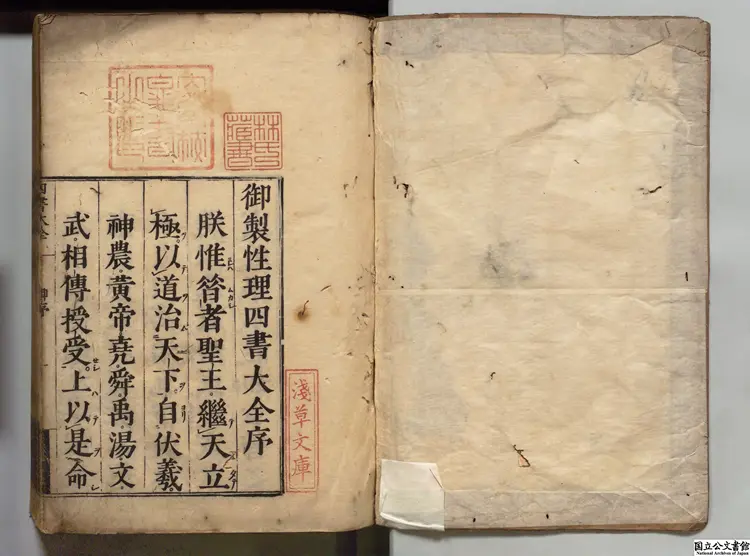 御製性理四書大全序
朕惟昝者聖王繼天立
極以道治天下自伏羲
神農黃帝堯舜禹湯文
武相傳授受上以是命
林氏藏書
淺草文庫
国立公文書館
National Archives of Japan